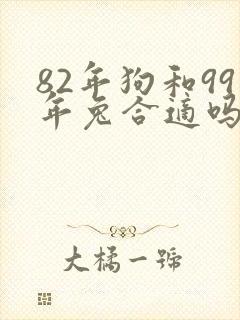 82年狗和99
年兔合适吗
大橘一號